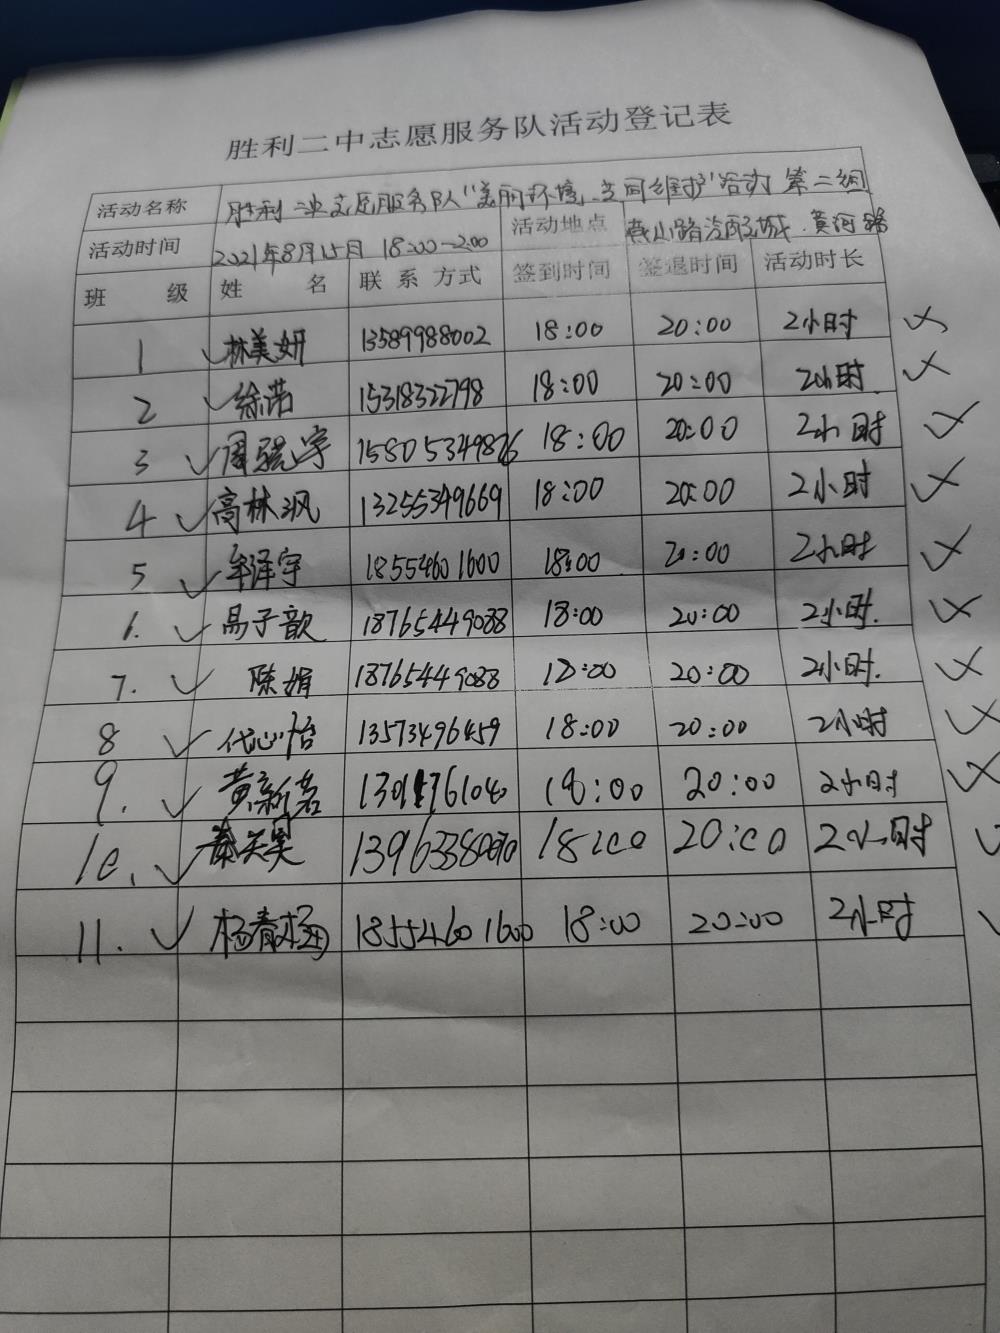 胜利二中志愿服务队活动登记表
活动名称 胜利二中志愿服务队"美丽环境、共同维护"活动 第二组
活动时间 2021年8月15日 18:00-2:00 活动地点 燕山路汽配城、黄河路
班 级 姓 名 联系方式 签到时间 签退时间 活动时长
1 林美妍 13589988002 18:00 20:00 2小时
2 徐诺 15318322798 18:00 20:00 2小时
3 周骁宇 15805349826 18:00 20:00 2小时
4 高林沨 13255349669 18:00 20:00 2小时
5 牟泽宇 18554601600 18:00 20:00 2小时
6. 易子歆 18765449088 18:00 20:00 2小时.
7. 陈娟 18765449088 18:00 20:00 2小时.
8 代心怡 13573496459 18:00 20:00 2小时
9. 黄新茗 18:00 20:00 2小时
10. 18:00 20:00 2小时
11. 杨青 18554601600 18:00 20:00 2小时